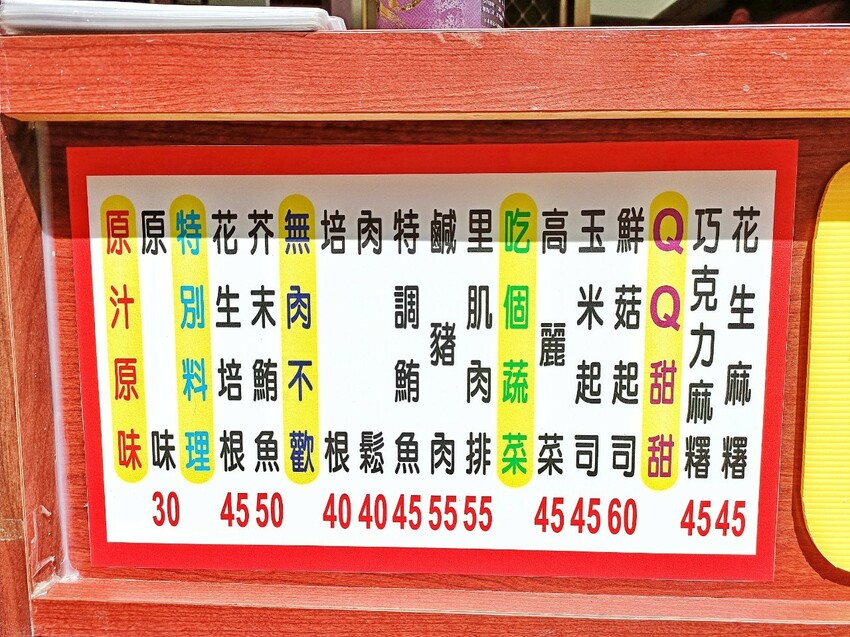 原汁原味
原味 30
特別料理
花生培根 45
芥末鮪魚 50
無肉不歡
培根 40
肉鬆 40
特調鮪魚 45
鹹豬肉 55
里肌肉排 55
吃個蔬菜
高麗菜 45
玉米起司 45
鮮菇起司 60
QQ甜甜
巧克力麻糬 45
花生麻糬 45